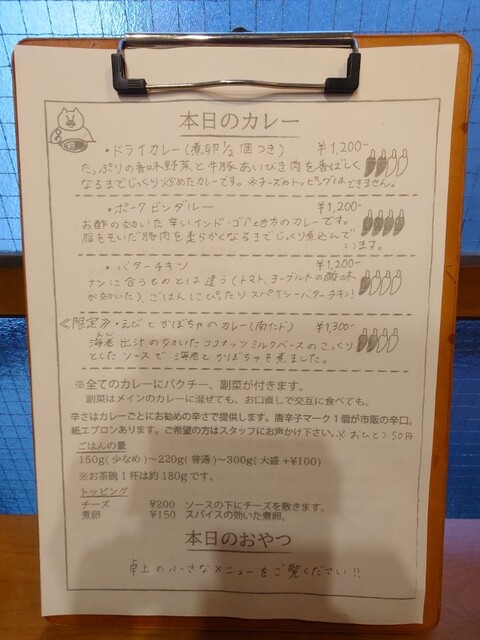 本日のカレー
・ドライカレー(煮卵1/2個つき) ¥1,200-
たっぷりの香味野菜と牛豚あいびき肉を香ばしく
なるまでじっくり炒めたカレーです。※チーズのトッピングはできません。
・ポークビンダルー ¥1,200-
お酢の効いた辛いインド・ゴア地方のカレーです。
脂をそいだ豚肉を柔らかくなるまでじっくり煮込んで
います。
・バターチキン ¥1,200-
ナンに合うものとは違う(トマト、ヨーグルトの酸味
が効いた)、ごはんにぴったりスパイシーバターチキン!
≪限定≫・えびとかぼちゃのカレー(南インド) ¥1,300-
海老出汁のきいたココナッツミルクベースのこっくり
としたソースで海老とかぼちゃを煮ました。
※全てのカレーにパクチー、副菜が付きます。
副菜はメインのカレーに混ぜても、お口直しで交互に食べても。
辛さはカレーごとにお勧めの辛さで提供します。唐辛子マーク1個が市販の辛口。
紙エプロンあります。ご希望の方はスタッフにお声かけ下さい。※おひとつ50円
ごはんの量
150g(少なめ)~220g(普通)~300g(大盛+¥100)
※お茶碗1杯は約180gです。
トッピング
チーズ ¥200 ソースの下にチーズを敷きます。
煮卵 ¥150 スパイスの効いた煮卵。
本日のおやつ
卓上の小さなメニューをご覧ください!!